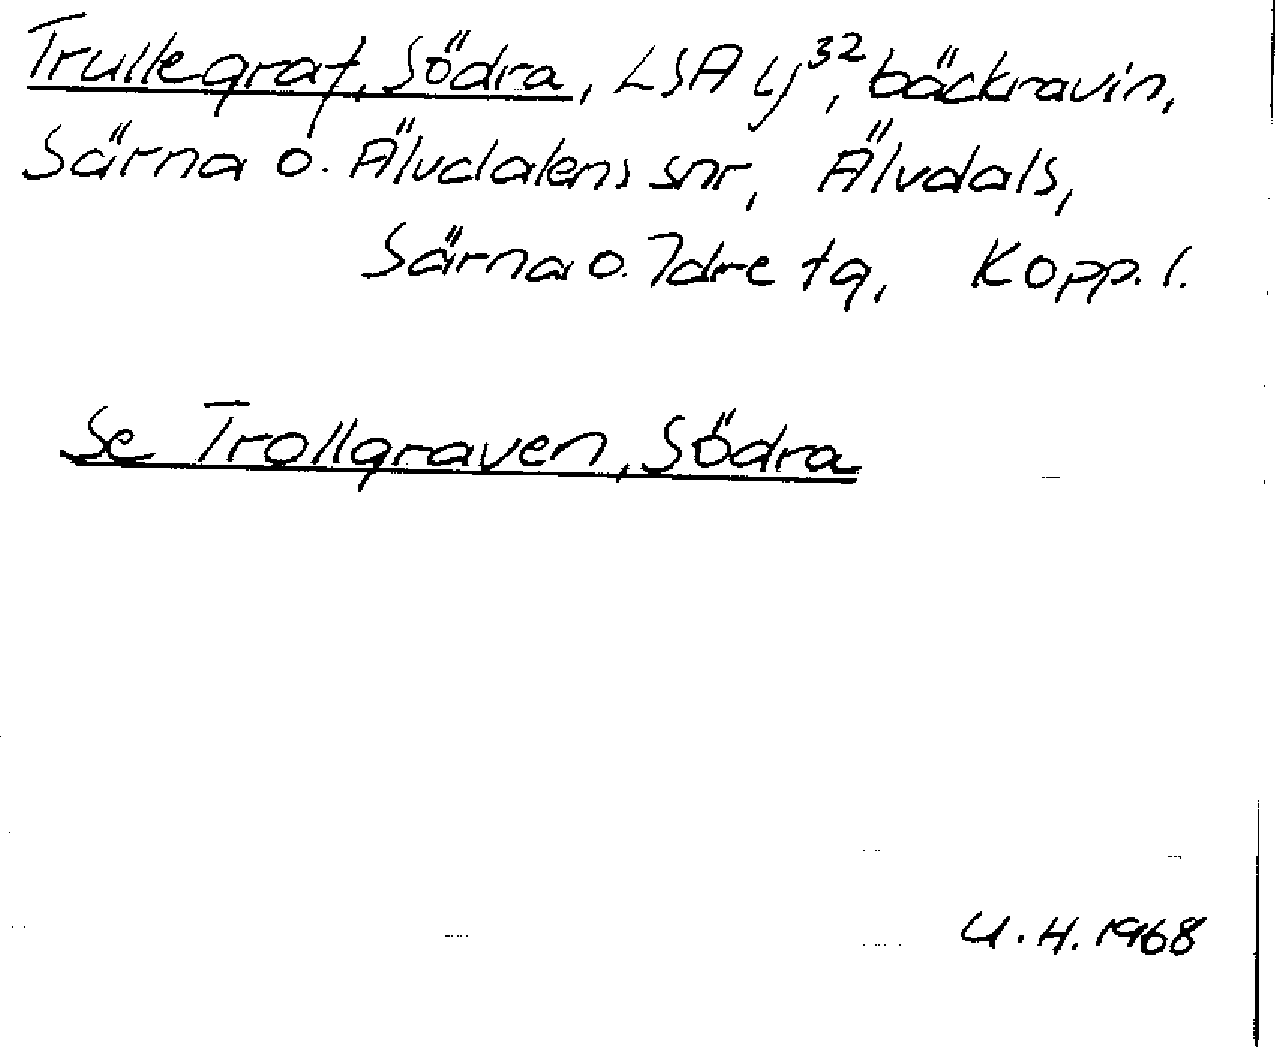 Trullegraf, Södra, LSA Lj³², bäckravin,
Särna o. Älvdalens snr, Älvdals,
Särna o. Idre tg, Kopp. l.
Se Trollgraven, Södra
U.H. 1968